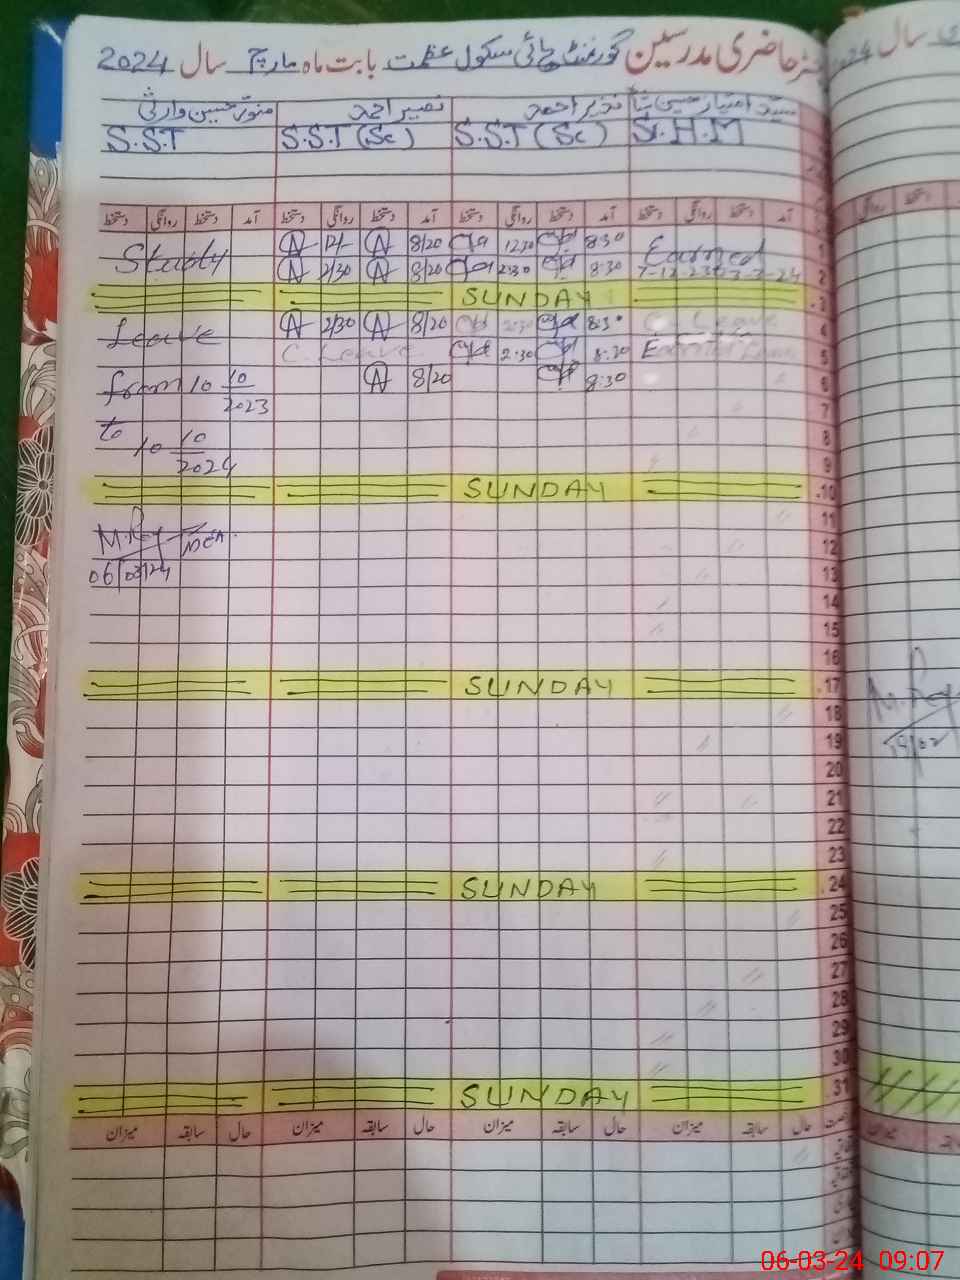 رجسٹر حاضری مدرسین گورنمنٹ ہائی سکول عظمت بابت ماہ مارچ سال 2024
سید امتیاز حسین نذیر احمد نصیر احمد منور حسین وارثی
S.S.T S.S.T (Sc) S.S.T (Sc) Sr. H. M
آمد دستخط روانگی دستخط آمد دستخط روانگی دستخط آمد دستخط روانگی دستخط آمد دستخط روانگی دستخط
Study 12/- 8/20 12:30 8:30 Earned 1
2/30 8/20 2:30 8:30 7-12-23 2
SUNDAY 3
Leave 2/30 8/20 2:30 8:30 C. Leave 4
C. Leave 2:30 8:30 5
from 10 10/2023 8/20 8:30 6
7
to 10 10/2024 8
9
SUNDAY 10
11
M.Rey MEA. 12
06/03/24 13
14
15
16
SUNDAY 17
18
19
20
21
22
23
SUNDAY 24
25
26
27
28
29
30
SUNDAY 31
حال سابقہ میزان حال سابقہ میزان حال سابقہ میزان حال سابقہ میزان
سال
2024
M.Rey
19/02
06-03-24 09:07